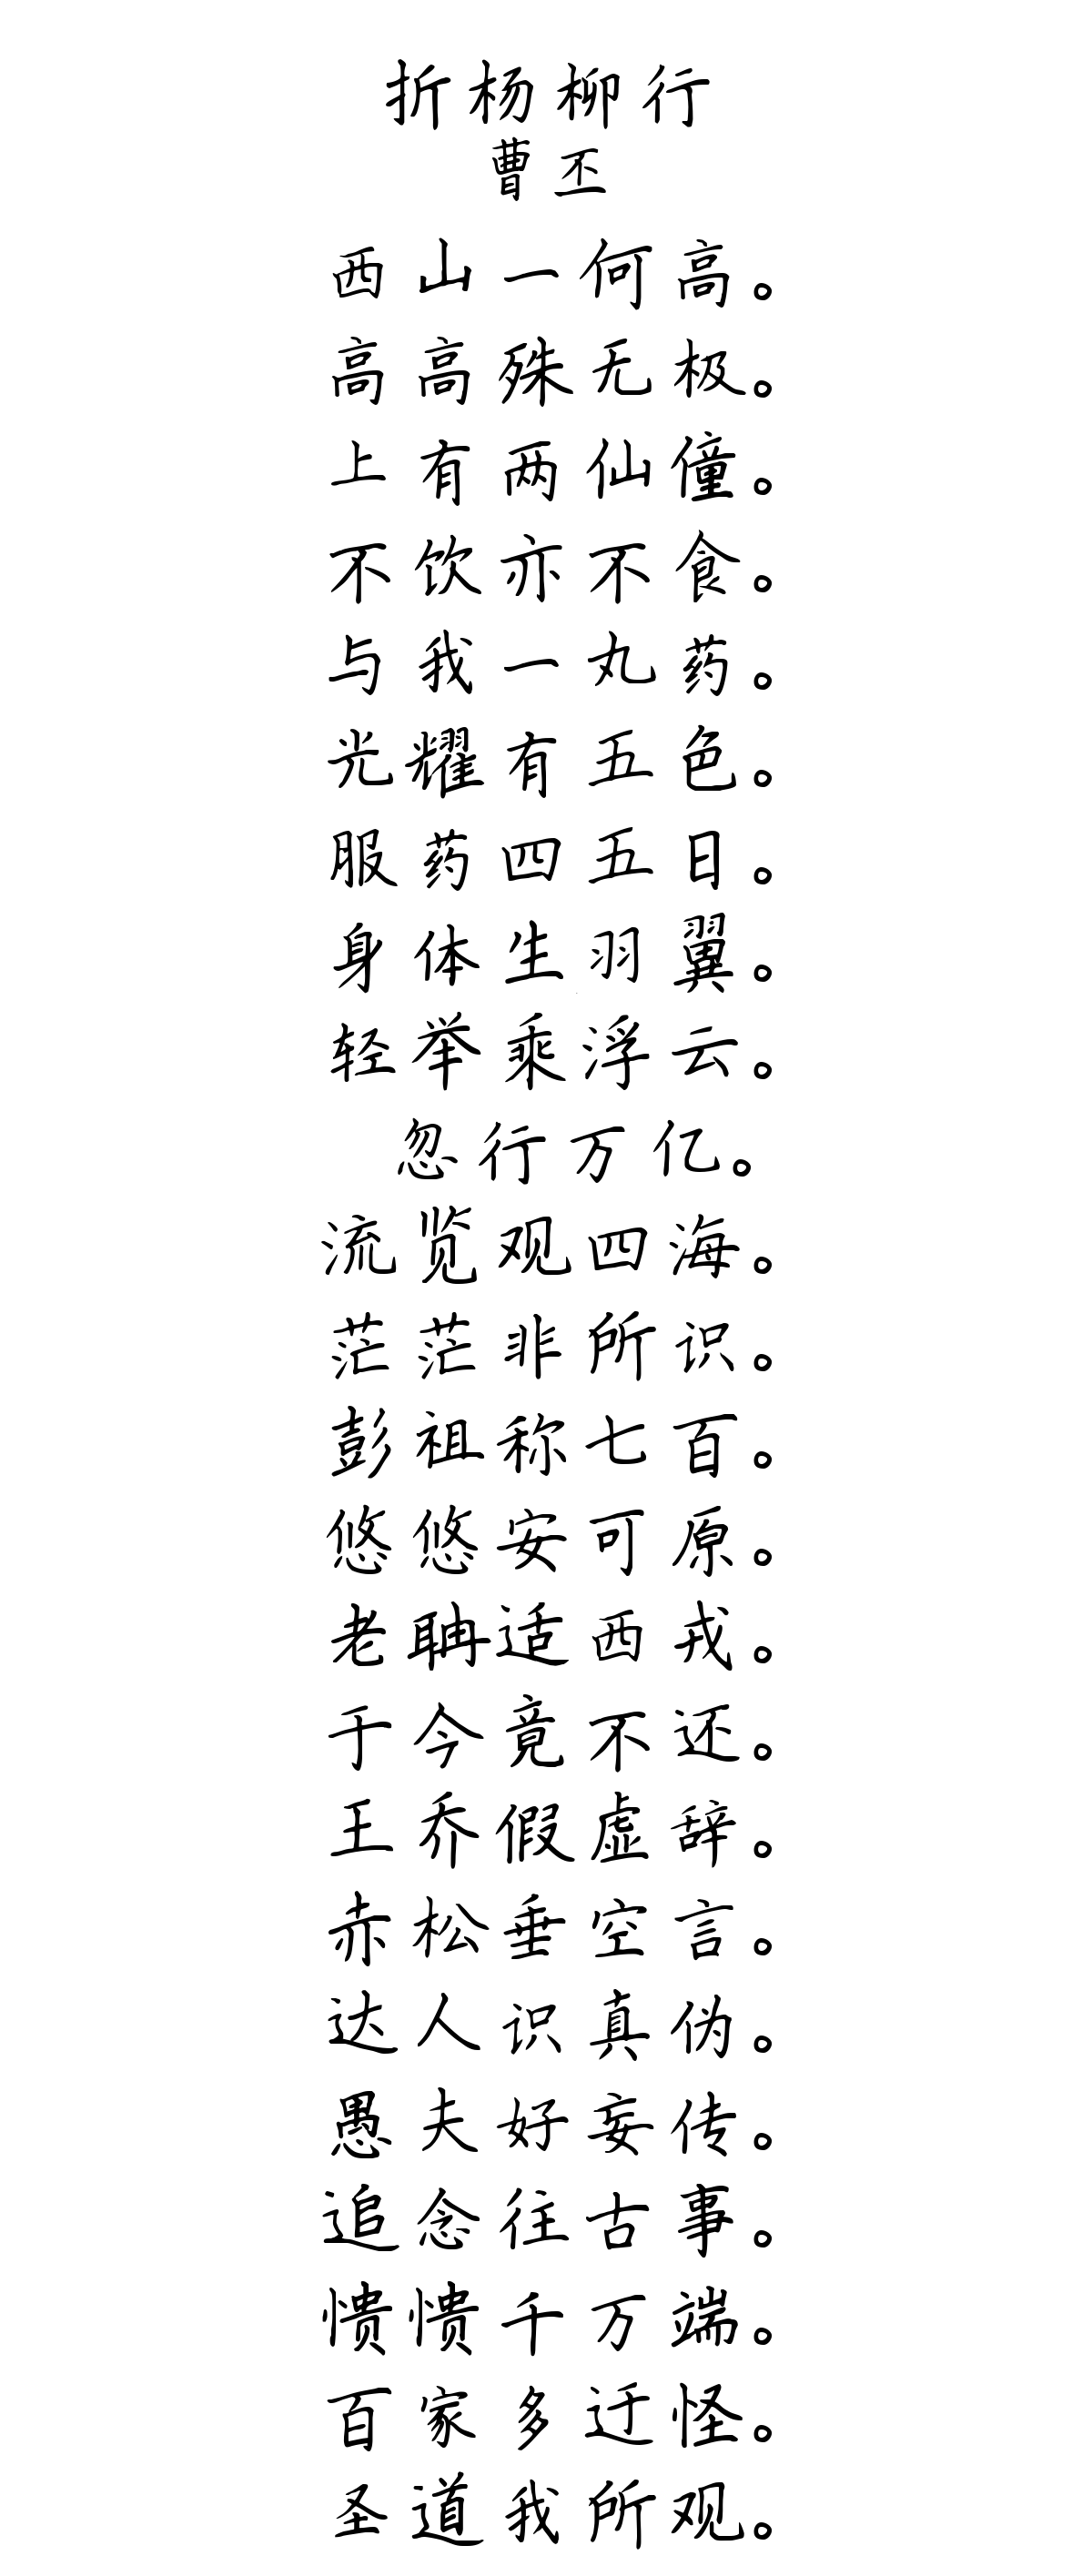 折杨柳行
曹丕
西山一何高。
高高殊无极。
上有两仙僮。
不饮亦不食。
与我一丸药。
光耀有五色。
服药四五日。
身体生羽翼。
轻举乘浮云。
忽行万亿。
流览观四海。
茫茫非所识。
彭祖称七百。
悠悠安可原。
老聃适西戎。
于今竟不还。
王乔假虚辞。
赤松垂空言。
达人识真伪。
愚夫好妄传。
追念往古事。
愦愦千万端。
百家多迂怪。
圣道我所观。